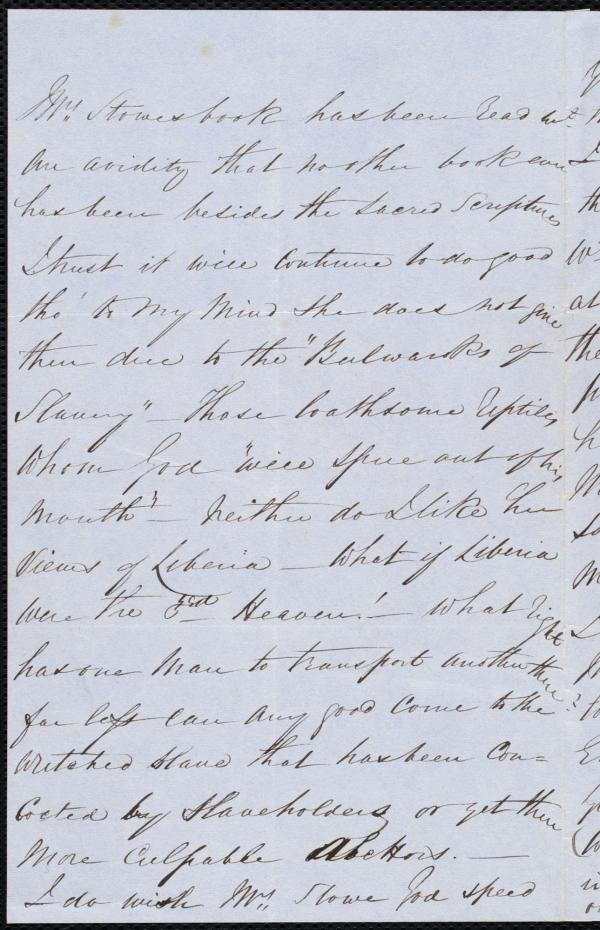 Mrs Stowes book has been read wt.
an avidity that no other book ever
has been besides the Sacred Scriptures
I trust it will continue to do good
tho' to my mind she does not give
their due to the "Bulwarks of
Slavery" — Those loathsome reptiles
whom God "will spue out of his
mouth" — Neither do I like her
views of Liberia — What if Liberia
were the 3rd Heaven! — What right
has one man to transport another there?
far less can any good come to the
wretched slave that has been con=
cocted by Slaveholders or yet their
more culpable Abettors. —
I do wish Mrs Stowe God speed